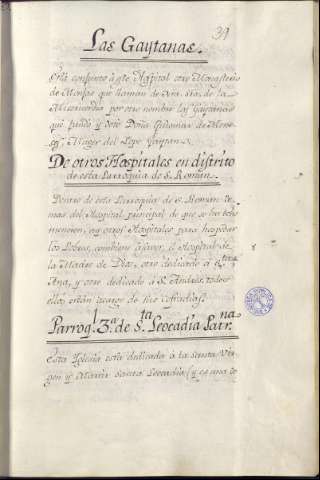 31
Las Gaytanas.
Está conjunto à este Hospital otro Monasterio
de Monjas que llaman de Nra. Sra. de la
Misericordia por otro nombre las Gaytanas
que fundó y dotó Doña Guiomar de Mene-
ses, Muger del Lope Gaytan.
De otros Hospitales en distrito
de esta Parroquia de S. Román.
Dentro de esta Parroquia de S. Roman de
mas del Hospital principal de que se ha hecho
mencion, ay otros Hospitales para hospedar
los Pobres, combiene à saver, el Hospital de
la Madre de Dios, otro dedicado à Sta.
Ana, y otro dedicado à S. Andrés, todos
ellos están à cargo de sus Cofradias.
Parroql. 3ª. de Sta. Leocadia Patrna.
Esta Iglesia está dedicada à la Santa Vir-
gen y Martir Santa Leocadia, (y es una de